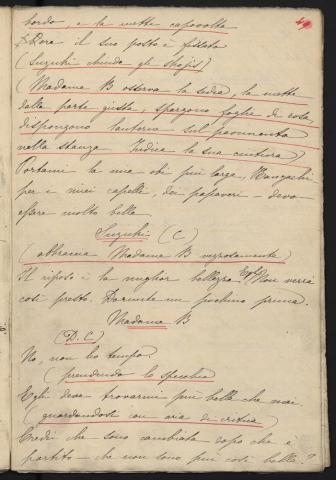 bordo, e la mette capovolta
Ora il suo posto è fissato
(Suzuki chiude gli shojis)
(Madama B osserva la sedia, la mette
dalla parte giusta, spargono foglie di rosa,
dispongono lanterne sul pavimento
nella stanza Indica la sua cintura)
Portami la mia obi più larga,
per i miei capelli, dei papaveri – devo
essere molto bella
Suzuki (C)
(abbraccia Madama B vezzosamente)
Il riposo è la miglior bellezza Egli Non verrà
così presto. Dormite un pochino prima.
Madama B
(D.C)
No, non ho tempo.
(prendendo lo specchio
Egli deve trovarmi più bella che mai
(guardandosi con aria di critica)
Credi che sono cambiata dopo che è
partito – che non sono più così bella?